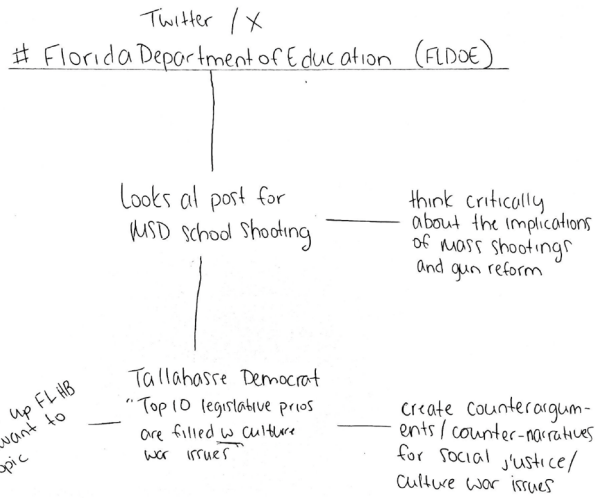 Twitter / X
# Florida Department of Education (FLDOE)
Looks at post for
MSD School Shooting
think critically
about the implications
of mass shootings
and gun reform
Tallahasse Democrat
"Top 10 legislative prios
are filled w culture
war issues"
up FL HB
want to
opic
create counterargum-
ents/counter-narratives
for social justice/
culture war issues